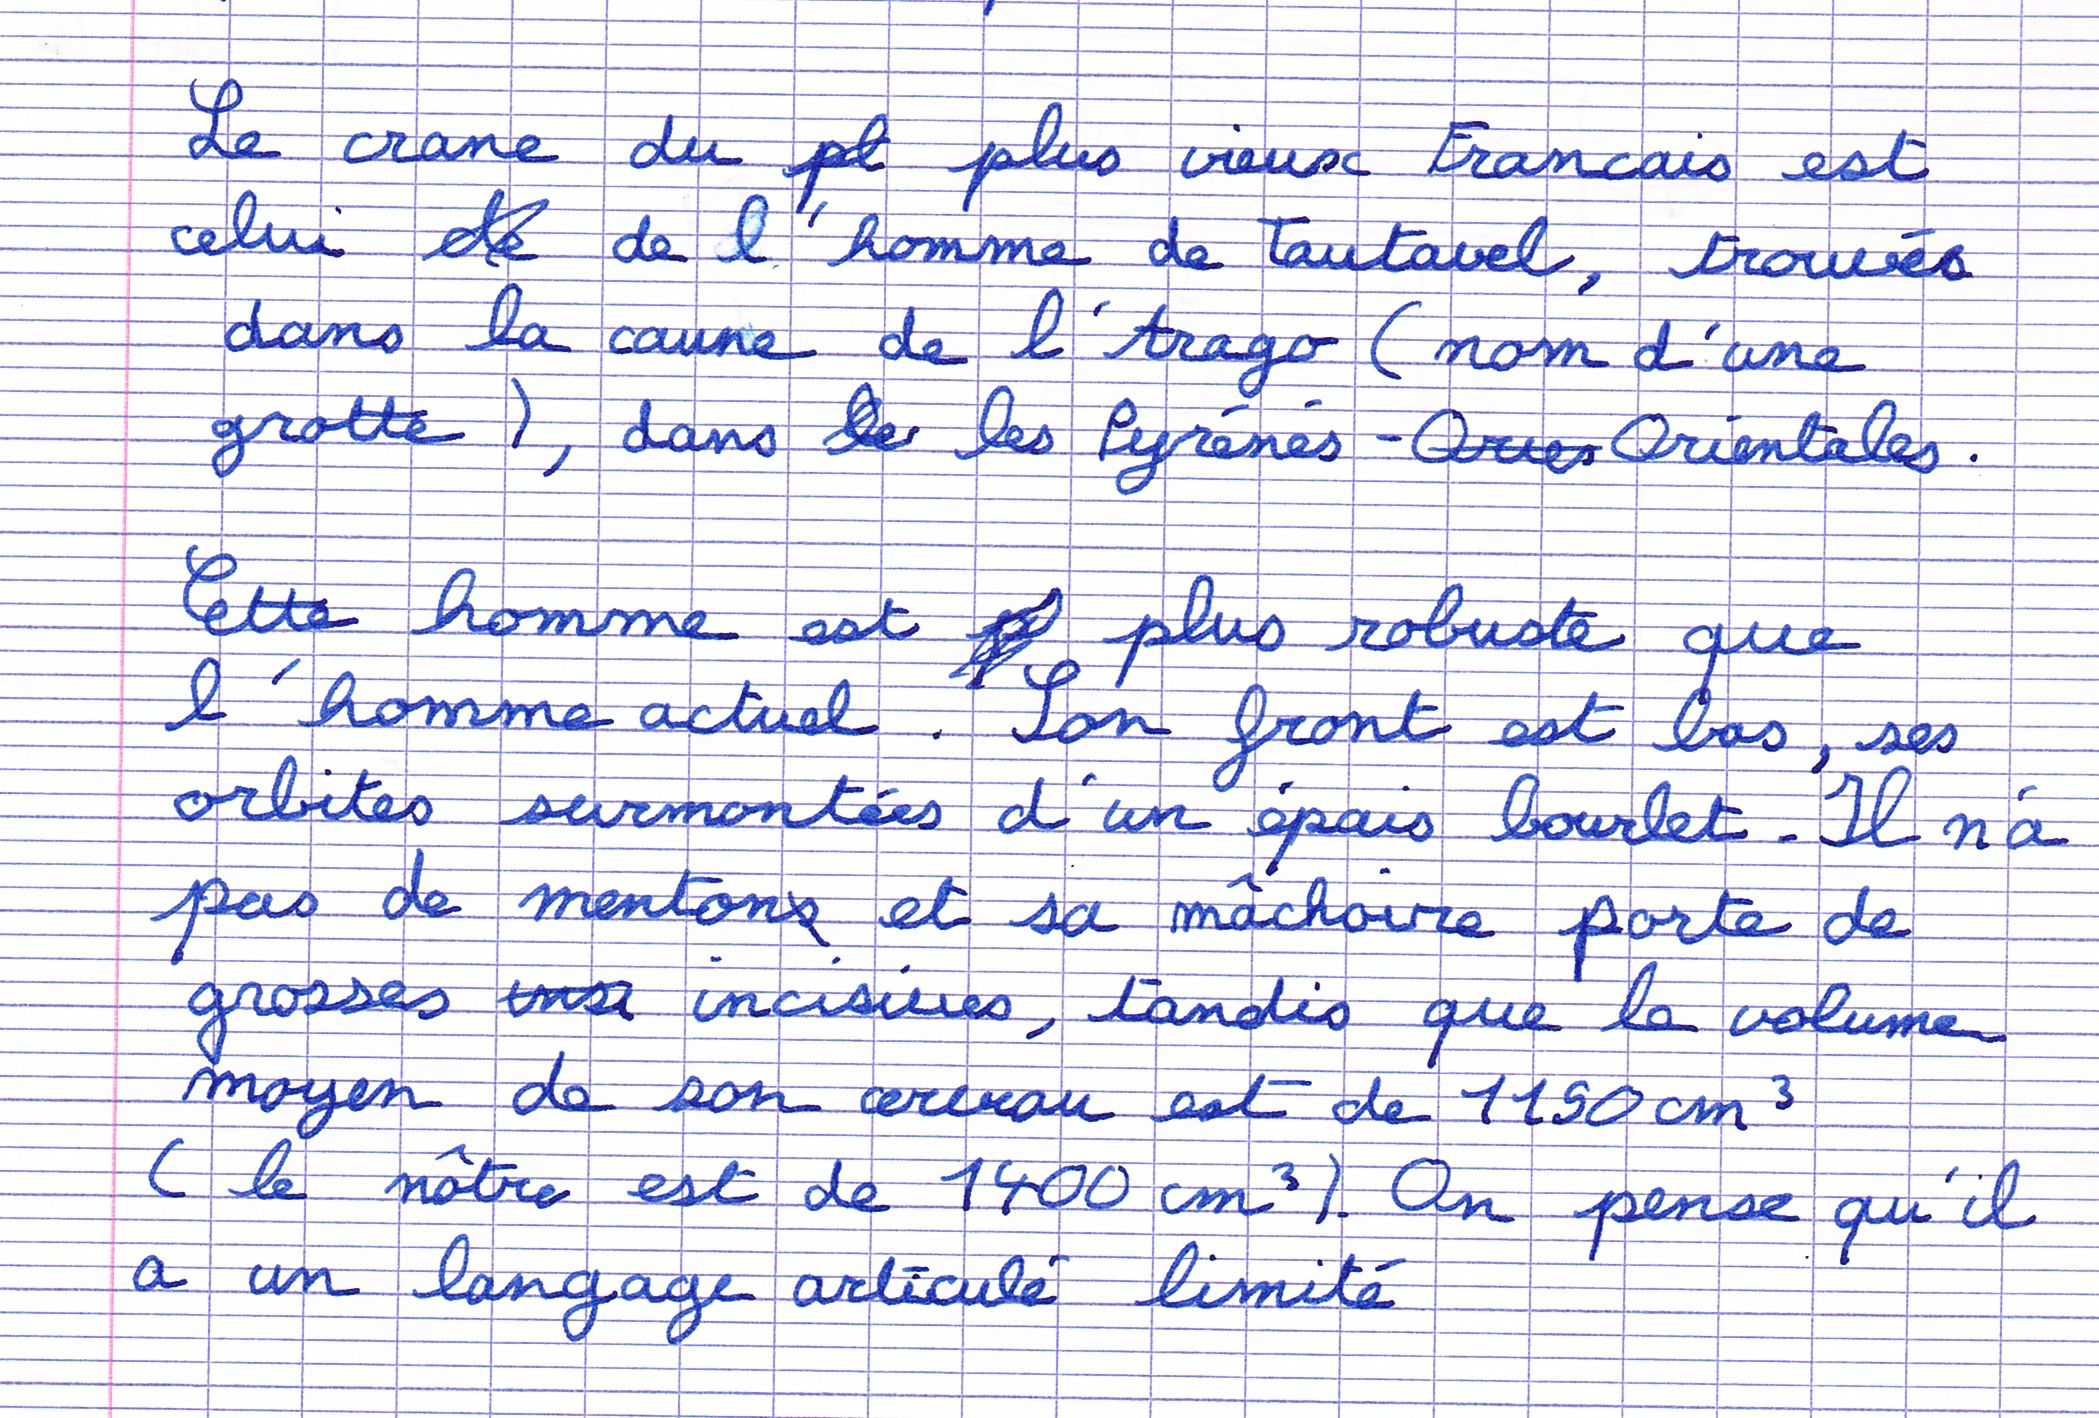 Le crane du pl plus vieux Francais est
celui de de l'homme de Tautavel, trouvés
dans la caune de l'Arago (nom d'une
grotte), dans le les Pyrénés - Orientales.
Cette homme est plus robuste que
l'homme actuel. Son front est bas, ses
orbites surmontées d'un épais bourlet. Il n'a
pas de menton et sa mâchoire porte de
grosses insi incisives, tandis que le volume
moyen de son cerveau est de 1150 cm³
(le nôtre est de 1400 cm³). On pense qu'il
a un langage articulé limité